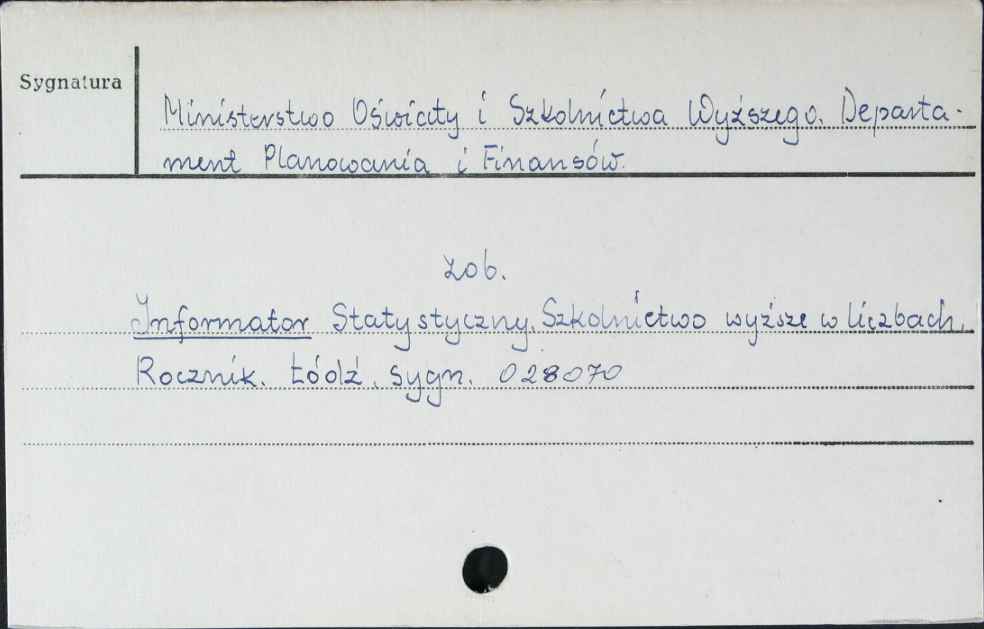 Sygnatura
Ministerstwo Oświaty i Szkolnictwa Wyższego. Departa-
ment Planowania i Finansów.
zob.
Informator Statystyczny. Szkolnictwo wyższe w liczbach.
Rocznik. Łódź. Sygn. 028070